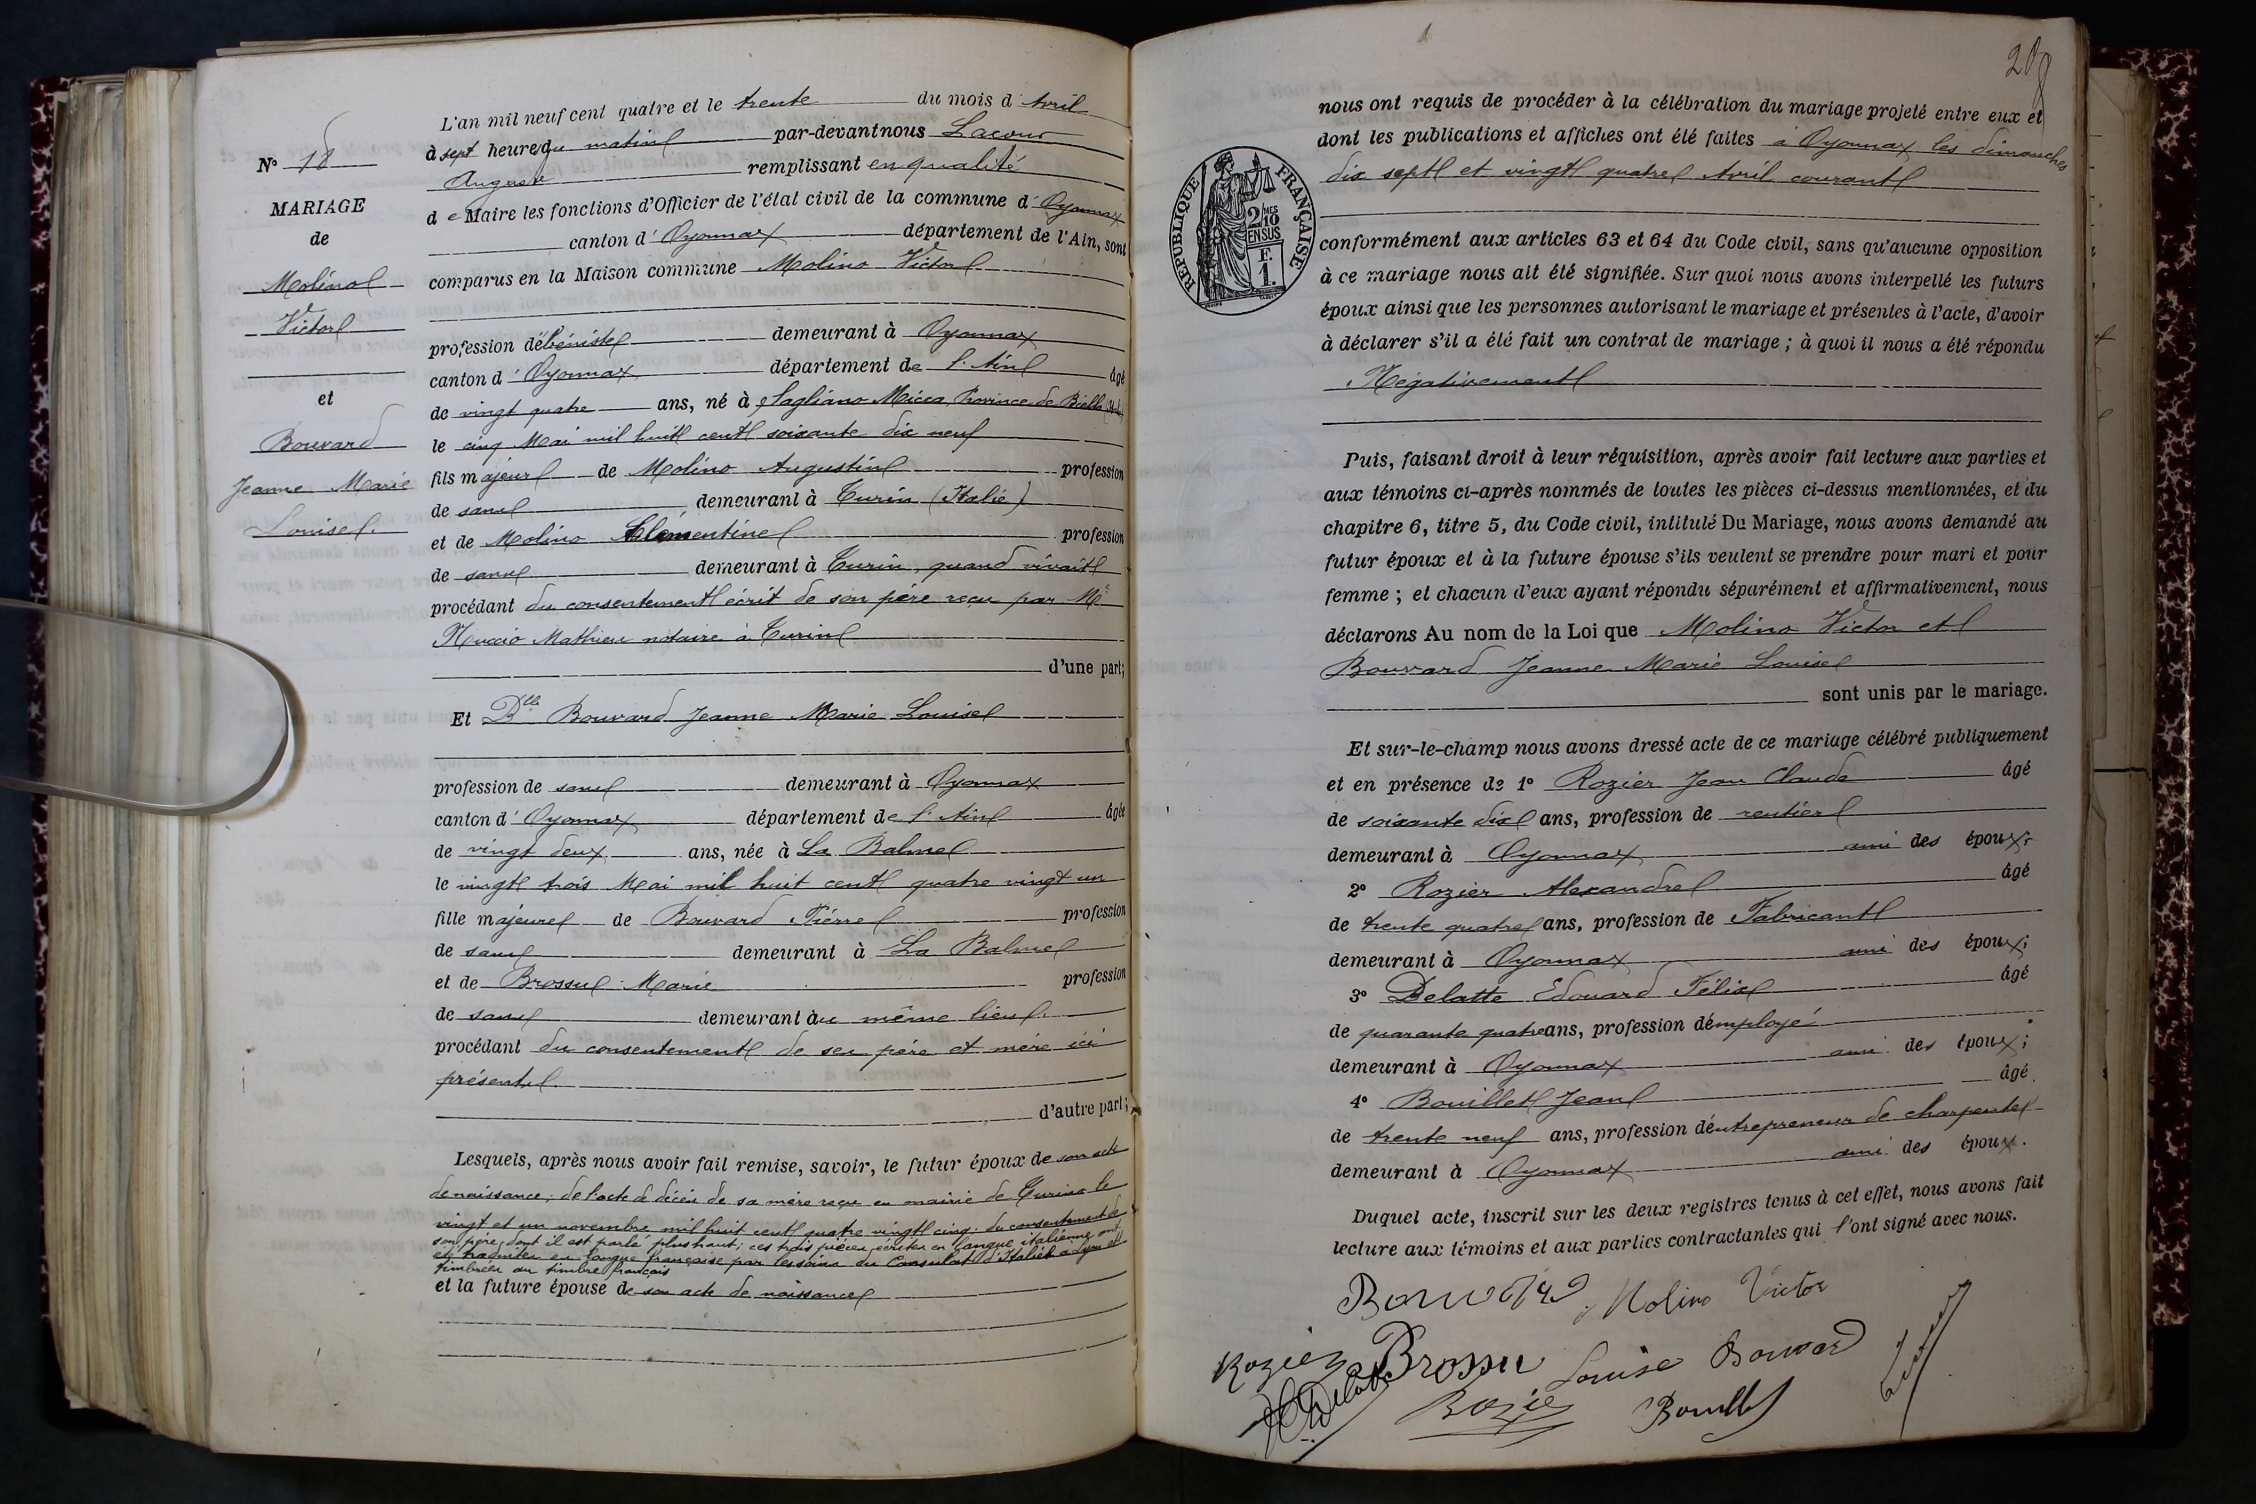 N° 18
MARIAGE
de
Molino
Victor
et
Bouvard
Jeanne Marie
Louise.
L'an mil neuf cent quatre et le trente du mois d'Avril
à sept heures du matin par-devant nous Lacour
Auguste remplissant en qualité
de Maire les fonctions d'Officier de l'état civil de la commune d'Oyonnax
canton d'Oyonnax département de l'Ain, sont
comparus en la Maison commune Molino Victor
profession d'ébéniste demeurant à Oyonnax
canton d'Oyonnax département de l'Ain âgé
de vingt quatre ans, né à Sagliano Micca, Province de Biella
le cinq Mai mil huit cent soixante dix neuf
fils majeur de Molino Augustin profession
de sans demeurant à Turin (Italie)
et de Molino Clémentine profession
de sans demeurant à Turin, quand vivait
procédant du consentement écrit de son père reçu par Me
Nuccio Mathieu notaire à Turin
d'une part;
Et Dlle Bouvard Jeanne Marie Louise
profession de sans demeurant à Oyonnax
canton d'Oyonnax département de l'Ain âgée
de vingt deux ans, née à La Balme
le vingt trois Mai mil huit cent quatre vingt un
fille majeure de Bouvard Pierre profession
de sans demeurant à La Balme
et de Brossu Marie profession
de sans demeurant au même lieu.
procédant du consentement de ses père et mère ici
présents
d'autre part;
Lesquels, après nous avoir fait remise, savoir, le futur époux de son acte
de naissance; de l'acte de décès de sa mère reçu en mairie de Turin le
vingt et un novembre mil huit cent quatre vingt cinq. du consentement de
son père, dont il est parlé plus haut; ces trois pièces écrites en langue italienne ont
été traduites en langue française par les soins du Consulat d'Italie à Lyon et
timbrées au timbre français
et la future épouse de son acte de naissance
nous ont requis de procéder à la célébration du mariage projeté entre eux et
dont les publications et affiches ont été faites à Oyonnax les dimanches
dix sept et vingt quatre Avril courant
RÉPUBLIQUE FRANÇAISE
2/10 MES
EN SUS
F.
1.
conformément aux articles 63 et 64 du Code civil, sans qu'aucune opposition
à ce mariage nous ait été signifiée. Sur quoi nous avons interpellé les futurs
époux ainsi que les personnes autorisant le mariage et présentes à l'acte, d'avoir
à déclarer s'il a été fait un contrat de mariage; à quoi il nous a été répondu
Négativement
Puis, faisant droit à leur réquisition, après avoir fait lecture aux parties et
aux témoins ci-après nommés de toutes les pièces ci-dessus mentionnées, et du
chapitre 6, titre 5, du Code civil, intitulé Du Mariage, nous avons demandé au
futur époux et à la future épouse s'ils veulent se prendre pour mari et pour
femme; et chacun d'eux ayant répondu séparément et affirmativement, nous
déclarons Au nom de la Loi que Molino Victor et
Bouvard Jeanne Marie Louise
sont unis par le mariage.
Et sur-le-champ nous avons dressé acte de ce mariage célébré publiquement
et en présence de 1° Rozier Jean Claude âgé
de soixante dix ans, profession de rentier
demeurant à Oyonnax ami des époux;
2° Rozier Alexandre âgé
de trente quatre ans, profession de Fabricant
demeurant à Oyonnax ami des époux;
3° Delatte Edouard Félix âgé
de quarante quatre ans, profession d'employé
demeurant à Oyonnax ami des époux;
4° Bouillet Jean âgé
de trente neuf ans, profession d'entrepreneur de charpente
demeurant à Oyonnax ami des époux.
Duquel acte, inscrit sur les deux registres tenus à cet effet, nous avons fait
lecture aux témoins et aux parties contractantes qui l'ont signé avec nous.
Molino Victor
Rozier Brossu Louise Bouvard
Delatte Rozier Bouillet